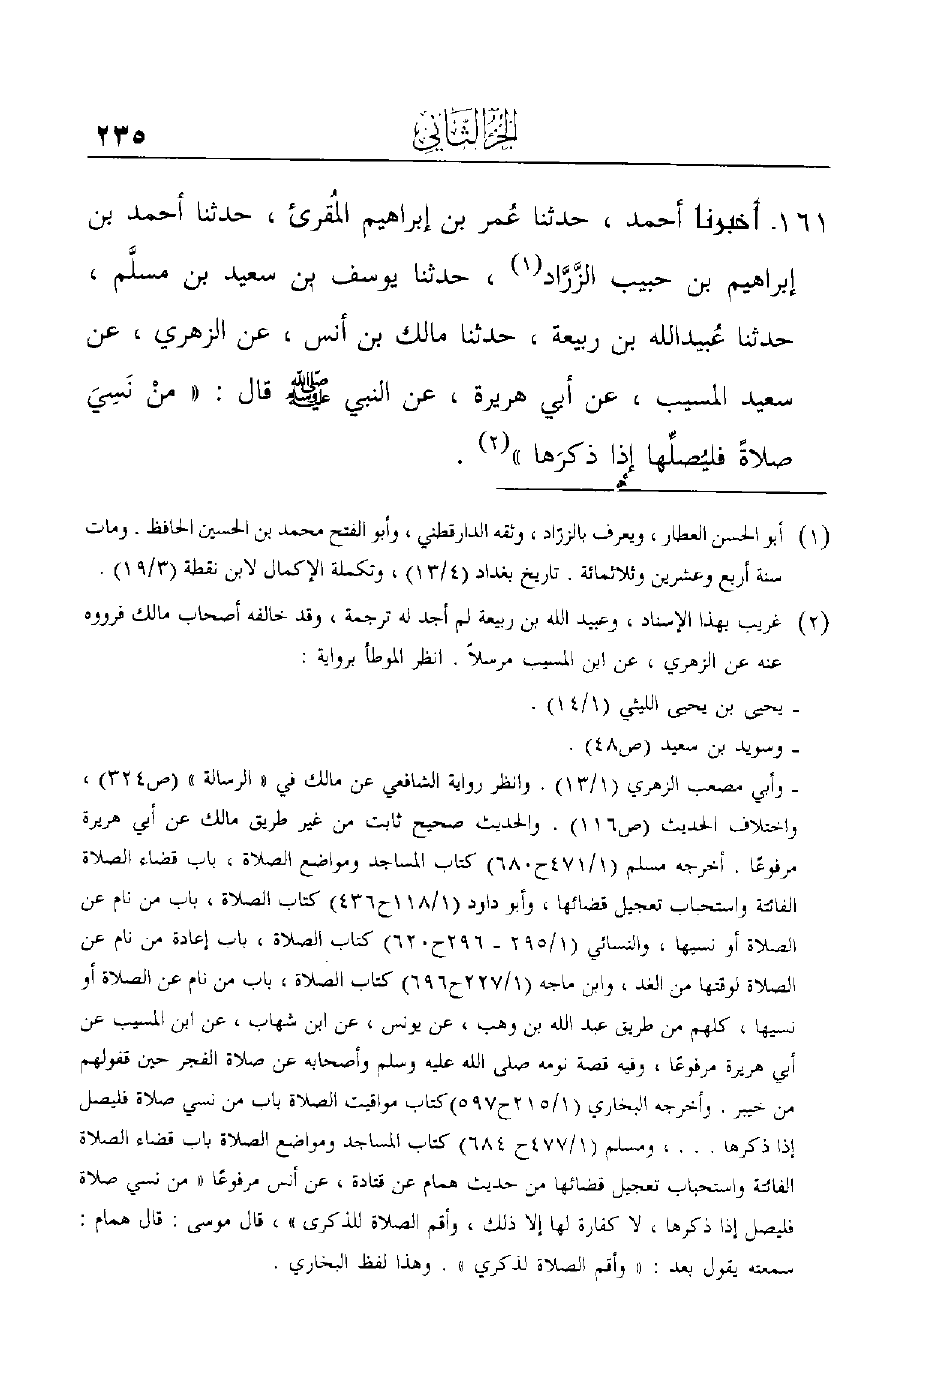 الجزء الثاني
٢٣٥
١٦١. أخبرنا أحمد ، حدثنا عُمر بن إبراهيم المُقرئ ، حدثنا أحمد بن
إبراهيم بن حبيب الزَّرَّاد(١) ، حدثنا يوسف بن سعيد بن مسلَّم ،
حدثنا عُبيدالله بن ربيعة ، حدثنا مالك بن أنس ، عن الزهري ، عن
سعيد المسيب ، عن أبي هريرة ، عن النبي ﷺ قال : « منْ نَسِيَ
صلاةً فليُصلِّها إذا ذكرَها »(٢) .
(١) أبو الحسن العطار ، ويعرف بالزرّاد ، وثقه الدارقطني ، وأبو الفتح محمد بن الحسين الحافظ . ومات
سنة أربع وعشرين وثلاثمائة . تاريخ بغداد (١٣/٤) ، وتكملة الإكمال لابن نقطة (١٩/٣) .
(٢) غريب بهذا الإسناد ، وعبيد الله بن ربيعة لم أجد له ترجمة ، وقد خالفه أصحاب مالك فرووه
عنه عن الزهري ، عن ابن المسيب مرسلاً . انظر الموطأ برواية :
ـ يحيى بن يحيى الليثي (١٤/١) .
ـ وسويد بن سعيد (ص٤٨) .
ـ وأبي مصعب الزهري (١٣/١) . وانظر رواية الشافعي عن مالك في « الرسالة » (ص٣٢٤) ،
واختلاف الحديث (ص١١٦) . والحديث صحيح ثابت من غير طريق مالك عن أبي هريرة
مرفوعًا . أخرجه مسلم (٤٧١/١ح٦٨٠) كتاب المساجد ومواضع الصلاة ، باب قضاء الصلاة
الفائتة واستحباب تعجيل قضائها ، وأبو داود (١١٨/١ح٤٣٦) كتاب الصلاة ، باب من نام عن
الصلاة أو نسيها ، والنسائي (٢٩٥/١ ـ ٢٩٦ح٦٢٠) كتاب الصلاة ، باب إعادة من نام عن
الصلاة لوقتها من الغد ، وابن ماجه (٢٢٧/١ح٦٩٦) كتاب الصلاة ، باب من نام عن الصلاة أو
نسيها ، كلهم من طريق عبد الله بن وهب ، عن يونس ، عن ابن شهاب ، عن ابن المسيب عن
أبي هريرة مرفوعًا ، وفيه قصة نومه صلى الله عليه وسلم وأصحابه عن صلاة الفجر حين قفولهم
من خيبر . وأخرجه البخاري (٢١٥/١ح٥٩٧)كتاب مواقيت الصلاة باب من نسي صلاة فليصل
إذا ذكرها . . . ، ومسلم (٤٧٧/١ح ٦٨٤) كتاب المساجد ومواضع الصلاة باب قضاء الصلاة
الفائتة واستحباب تعجيل قضائها من حديث همام عن قتادة ، عن أنس مرفوعًا « من نسي صلاة
فليصل إذا ذكرها ، لا كفارة لها إلا ذلك ، وأقم الصلاة للذكرى » ، قال موسى : قال همام :
سمعته يقول بعد : « وأقم الصلاة لذكري » . وهذا لفظ البخاري .